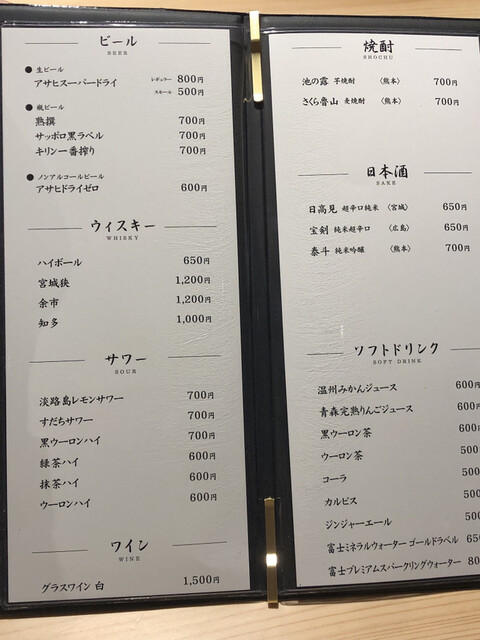 ビール
BEER
● 生ビール
アサヒスーパードライ レギュラー 800円
スモール 500円
● 瓶ビール
熟撰 700円
サッポロ黒ラベル 700円
キリン一番搾り 700円
● ノンアルコールビール
アサヒドライゼロ 600円
ウィスキー
WHISKY
ハイボール 650円
宮城狭 1,200円
余市 1,200円
知多 1,000円
サワー
SOUR
淡路島レモンサワー 700円
すだちサワー 700円
黒ウーロンハイ 700円
緑茶ハイ 600円
抹茶ハイ 600円
ウーロンハイ 600円
ワイン
WINE
グラスワイン 白 1,500円
焼酎
SHOCHU
池の露 芋焼酎 〈熊本〉 700円
さくら魯山 麦焼酎 〈熊本〉 700円
日本酒
SAKE
日高見 超辛口純米 〈宮城〉 650円
宝剣 純米超辛口 〈広島〉 650円
泰斗 純米吟醸 〈熊本〉 700円
ソフトドリンク
SOFT DRINK
温州みかんジュース 600円
青森完熟りんごジュース 600円
黒ウーロン茶 600円
ウーロン茶 500
コーラ 500
カルピス 500
ジンジャーエール 500
富士ミネラルウォーター ゴールドラベル 650
富士プレミアムスパークリングウォーター 80